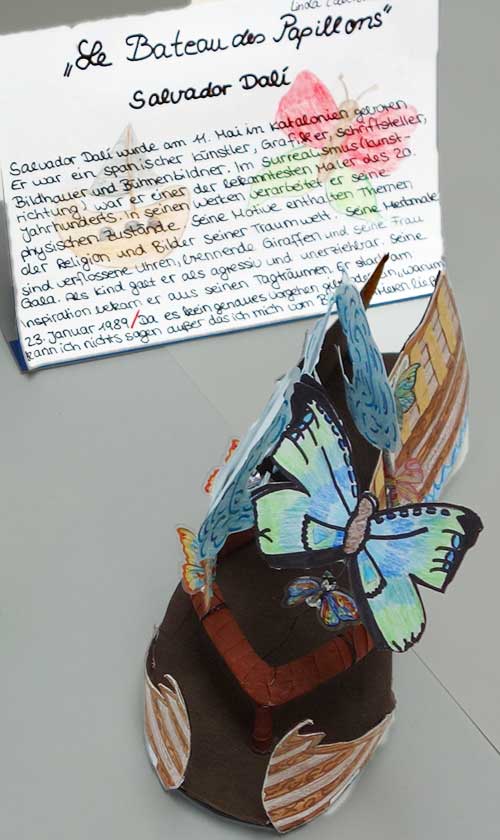 Linda
„Le Bateau des Papillons"
Salvador Dalí
Salvador Dalí wurde am 11. Mai in Katalonien geboren.
Er war ein spanischer Künstler, Grafiker, Schriftsteller,
Bildhauer und Bühnenbildner. Im Surrealismus (Kunst-
richtung) war er einer der bekanntesten Maler des 20.
Jahrhunderts. In seinen Werken verarbeitet er seine
physischen Zustände. Seine Motive enthalten Themen
der Religion und Bilder seiner Traumwelt. Seine Merkmale
sind verflossene Uhren, brennende Giraffen und seine Frau
Gala. Als Kind galt er als agressiv und unerziehbar. Seine
Inspiration bekam er aus seinen Tagträumen. Er starb am
23. Januar 1989/Da es kein genaues Vorgehen gibt, warum
kann ich nichts sagen außer das ich mich vom Bild ließ